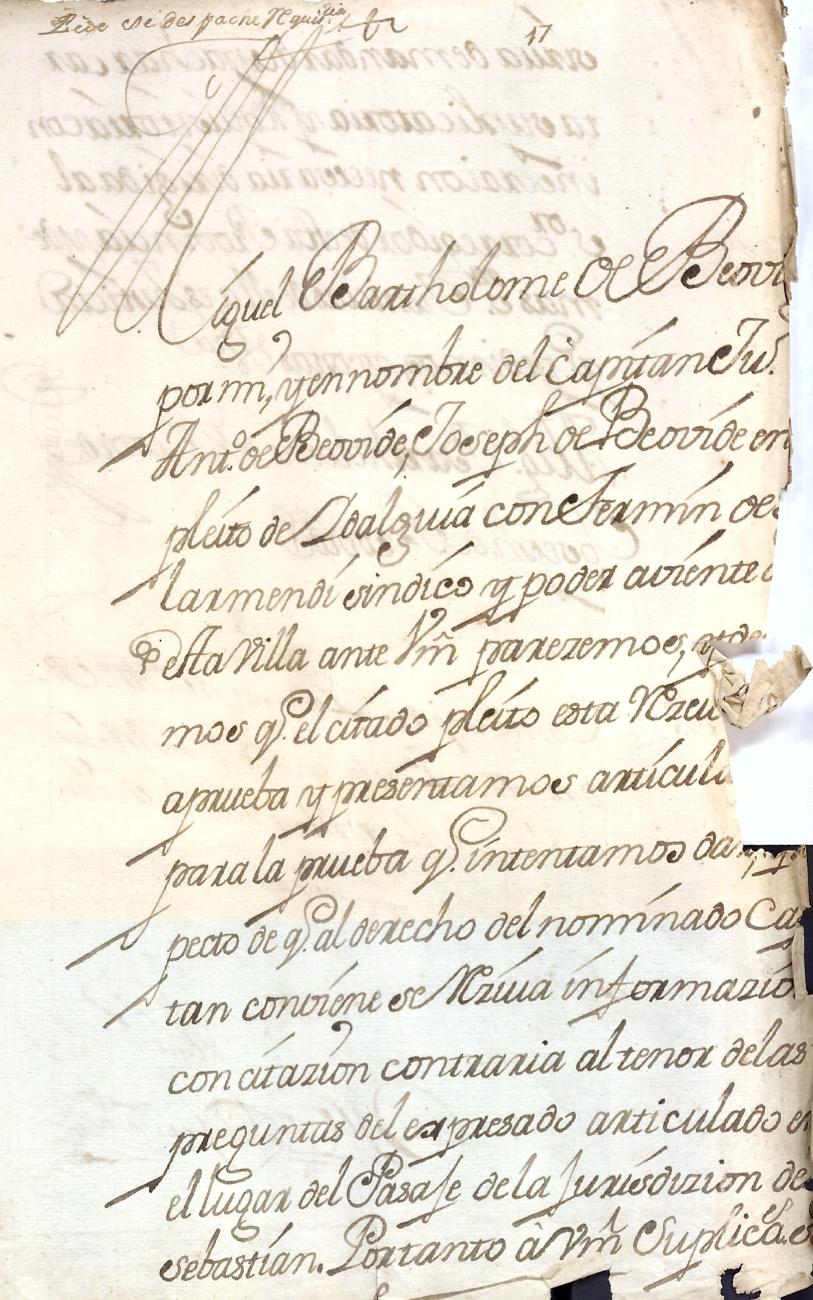 Pide se despache Requis.ria
17
Miguel Bartholome de Beovi
por mi, y en nombre del Capitan Ju.
Ant.o de Beovide, Joseph de Beovide en
pleito de Ydalguia con Fermin de
larmendi sindico y poder aviente
de esta Villa ante Vm parezemos, y de
mos q.e el citado pleito esta Rzeu
a prueba y presentamos articula
para la prueba q.e intentamos dar,
pecto de q.e al derecho del nominado Ca
tan conviene se Rziva informazio
con citazion contraria al tenor de las
preguntas del expresado articulado e
el lugar del Pasaje de la Jurisdizion de
sebastian. Por tanto à Vm Suplica.